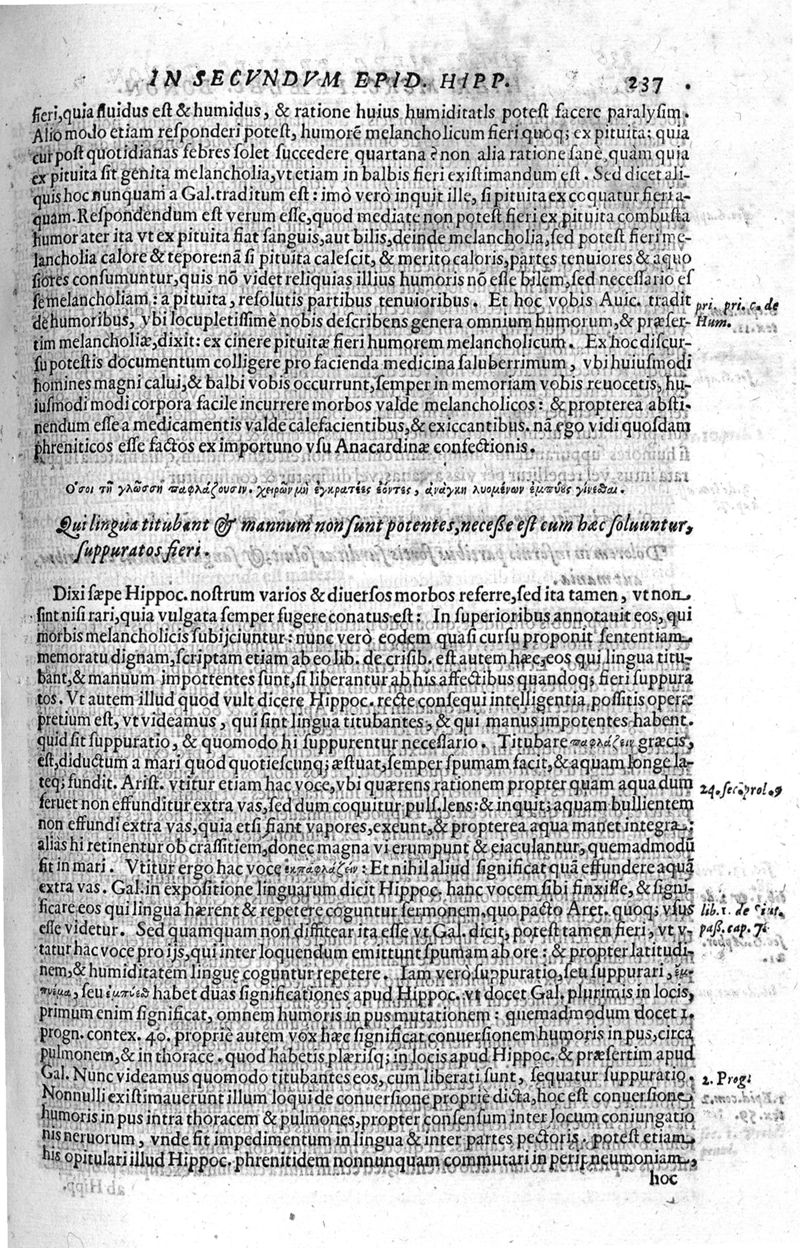 IN SECVNDVM EPID. HIPP. 237
fieri, quia fluidus est & humidus, & ratione huius humiditatIs potest facere paralysim.
Alio modo etiam responderi potest, humorē melancholicum fieri quoq; ex pituita: quia
cur post quotidianas febres solet succedere quartana? non alia ratione sanè, quàm quia
ex pituita sit genita melancholia, vt etiam in balbis fieri existimandum est. Sed dicet ali-
quis hoc nunquam a Gal. traditum est: imò verò inquit ille, si pituita excoquatur fieri a-
quam. Respondendum est verum esse, quod mediate non potest fieri ex pituita combusta
humor ater ita vt ex pituita fiat sanguis, aut bilis, deinde melancholia, sed potest fieri me-
lancholia calore & tepore: nā si pituita calescit, & merito caloris, partes tenuiores & aquo
siores consumuntur, quis nō videt reliquias illius humoris nō esse bilem, sed necessario es
se melancholiam: a pituita, resolutis partibus tenuioribus. Et hoc vobis Auic. tradit
pri. pri. c. de
de humoribus, vbi locupletissimè nobis describens genera omnium humorum, & præser-
Hum.
tim melancholiæ, dixit: ex cinere pituitæ fieri humorem melancholicum. Ex hoc discur-
su potestis documentum colligere pro facienda medicina saluberrimum, vbi huiusmodi
homines magni calui, & balbi vobis occurrunt, semper in memoriam vobis reuocetis, hu-
iusmodi modi corpora facile incurrere morbos valde melancholicos: & propterea absti-
nendum esse a medicamentis valde calefacientibus, & exiccantibus. nā ego vidi quosdam
phreniticos esse factos ex importuno vsu Anacardinæ confectionis.
Ο῞σοι τῇ γλώσσῃ παφλάζουσιν. χειρῶν μὴ ἐγκρατέες ἐόντες, ἀνάγκη λυομένων ἐμπύες γίνεσθαι.
Qui lingua titubant & mannum non sunt potentes, necesse est cum hæc soluuntur,
suppuratos fieri.
Dixi sæpe Hippoc. nostrum varios & diuersos morbos referre, sed ita tamen, vt non
sint nisi rari, quia vulgata semper fugere conatus est: In superioribus annotauit eos, qui
morbis melancholicis subijciuntur: nunc verò eodem quasi cursu proponit sententiam
memoratu dignam, scriptam etiam ab eo lib. de crisib. est autem hæc, eos qui lingua titu-
bant, & manuum impottentes sunt, si liberantur ab his affectibus quandoq; fieri suppura
tos. Vt autem illud quod vult dicere Hippoc. recte consequi intelligentia possitis operæ
pretium est, vt videamus, qui sint lingua titubantes, & qui manus impotentes habent.
quid sit suppuratio, & quomodo hi suppurentur necessario. Titubare παφλάζειν græcis,
est, diductum a mari quod quotiescunq; æstuat, semper spumam facit, & aquam longe la-
teq; fundit. Arist. vtitur etiam hac voce, vbi quærens rationem propter quam aqua dum
24. sec. prol. 9
feruet non effunditur extra vas, sed dum coquitur puls, lens: & inquit; aquam bullientem
non effundi extra vas, quia etsi fiant vapores, exeunt, & propterea aqua manet integra:
alias hi retinentur ob crassitiem, donec magna vi erumpunt & eiaculantur, quemadmodū
fit in mari. Vtitur ergo hac voce ἐκπαφλάζειν: Et nihil aliud significat quā effundere aquā
extra vas. Gal. in expositione linguarum dicit Hippoc. hanc vocem sibi finxisse, & signi-
ficare eos qui lingua hærent & repetere coguntur sermonem. quo pacto Aret. quoq; vsus
lib. 1. de
esse videtur. Sed quamquam non diffitear ita esse vt Gal. dicit, potest tamen fieri, vt v-
pass. cap. 7.
tatur hac voce pro ijs, qui inter loquendum emittunt spumam ab ore: & propter latitudi-
nem, & humiditatem linguę coguntur repetere. Iam verò suppuratio, seu suppurari, ἐμ-
πύημα, seu ἐμπύεσθ habet duas significationes apud Hippoc. vt docet Gal. plurimis in locis,
primum enim significat, omnem humoris in pus mutationem: quemadmodum docet 1.
progn. contex. 40. propriè autem vox hæc significat conuersionem humoris in pus, circa
pulmonem, & in thorace. quod habetis plærisq; in locis apud Hippoc. & præsertim apud
Gal. Nunc videamus quomodo titubantes eos, cum liberati sunt, sequatur suppuratio.
2. Prog.
Nonnulli existimauerunt illum loqui de conuersione proprie dicta, hoc est conuersione
humoris in pus intra thoracem & pulmones, propter consensum inter locum coniungatio
nis neruorum, vnde fit impedimentum in lingua & inter partes pectoris. potest etiam
his opitulari illud Hippoc. phrenitidem nonnunquam commutari in peripneumoniam,
hoc